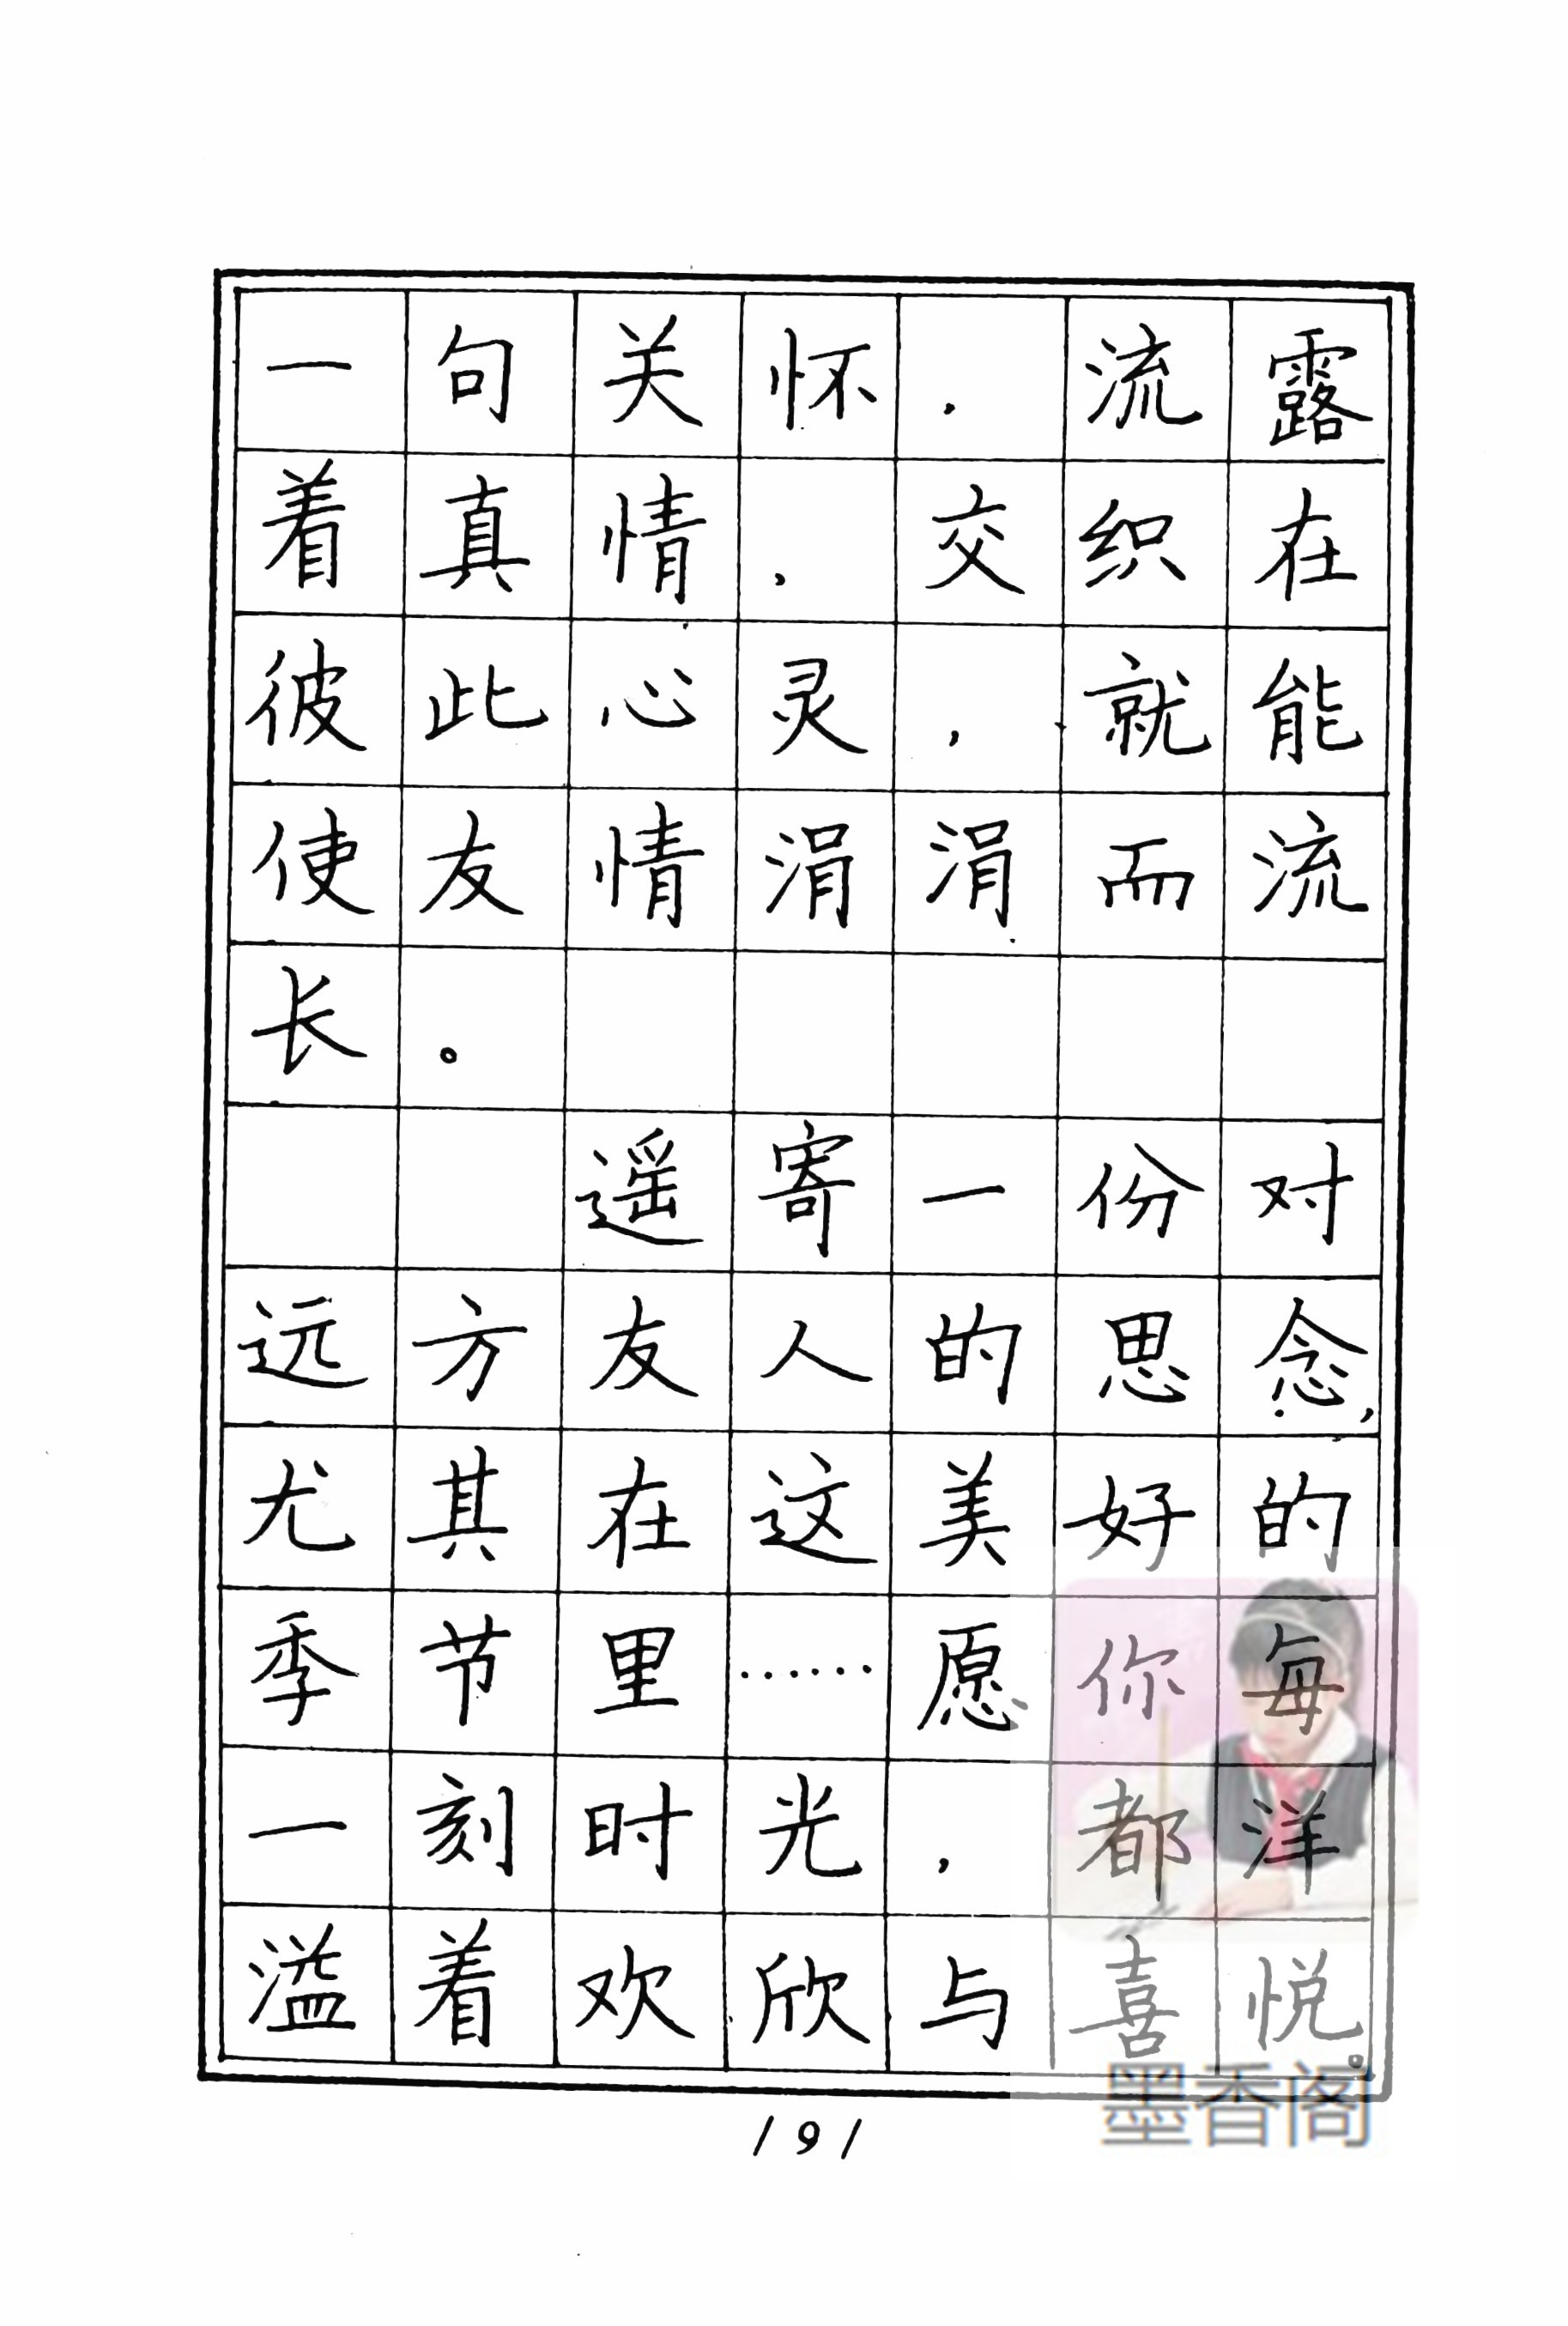 一句关怀，流露
着真情，交织在
彼此心灵，就能
使友情涓涓而流
长。
遥寄一份对
远方友人的思念，
尤其在这美好的
季节里……愿你每
一刻时光，都洋
溢着欢欣与喜悦。
191
墨香阁